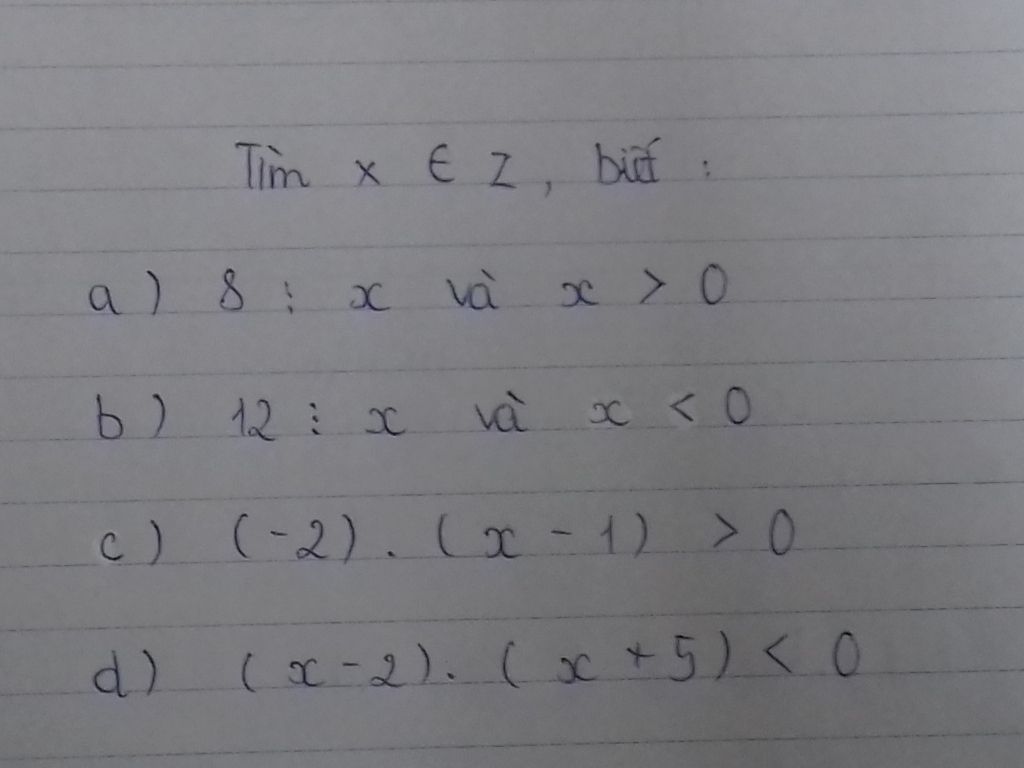 Tìm x ∈ Z, biết :
a) 8 ⋮ x và x > 0
b) 12 ⋮ x và x < 0
c) (-2) . (x - 1) > 0
d) (x - 2) . (x + 5) < 0